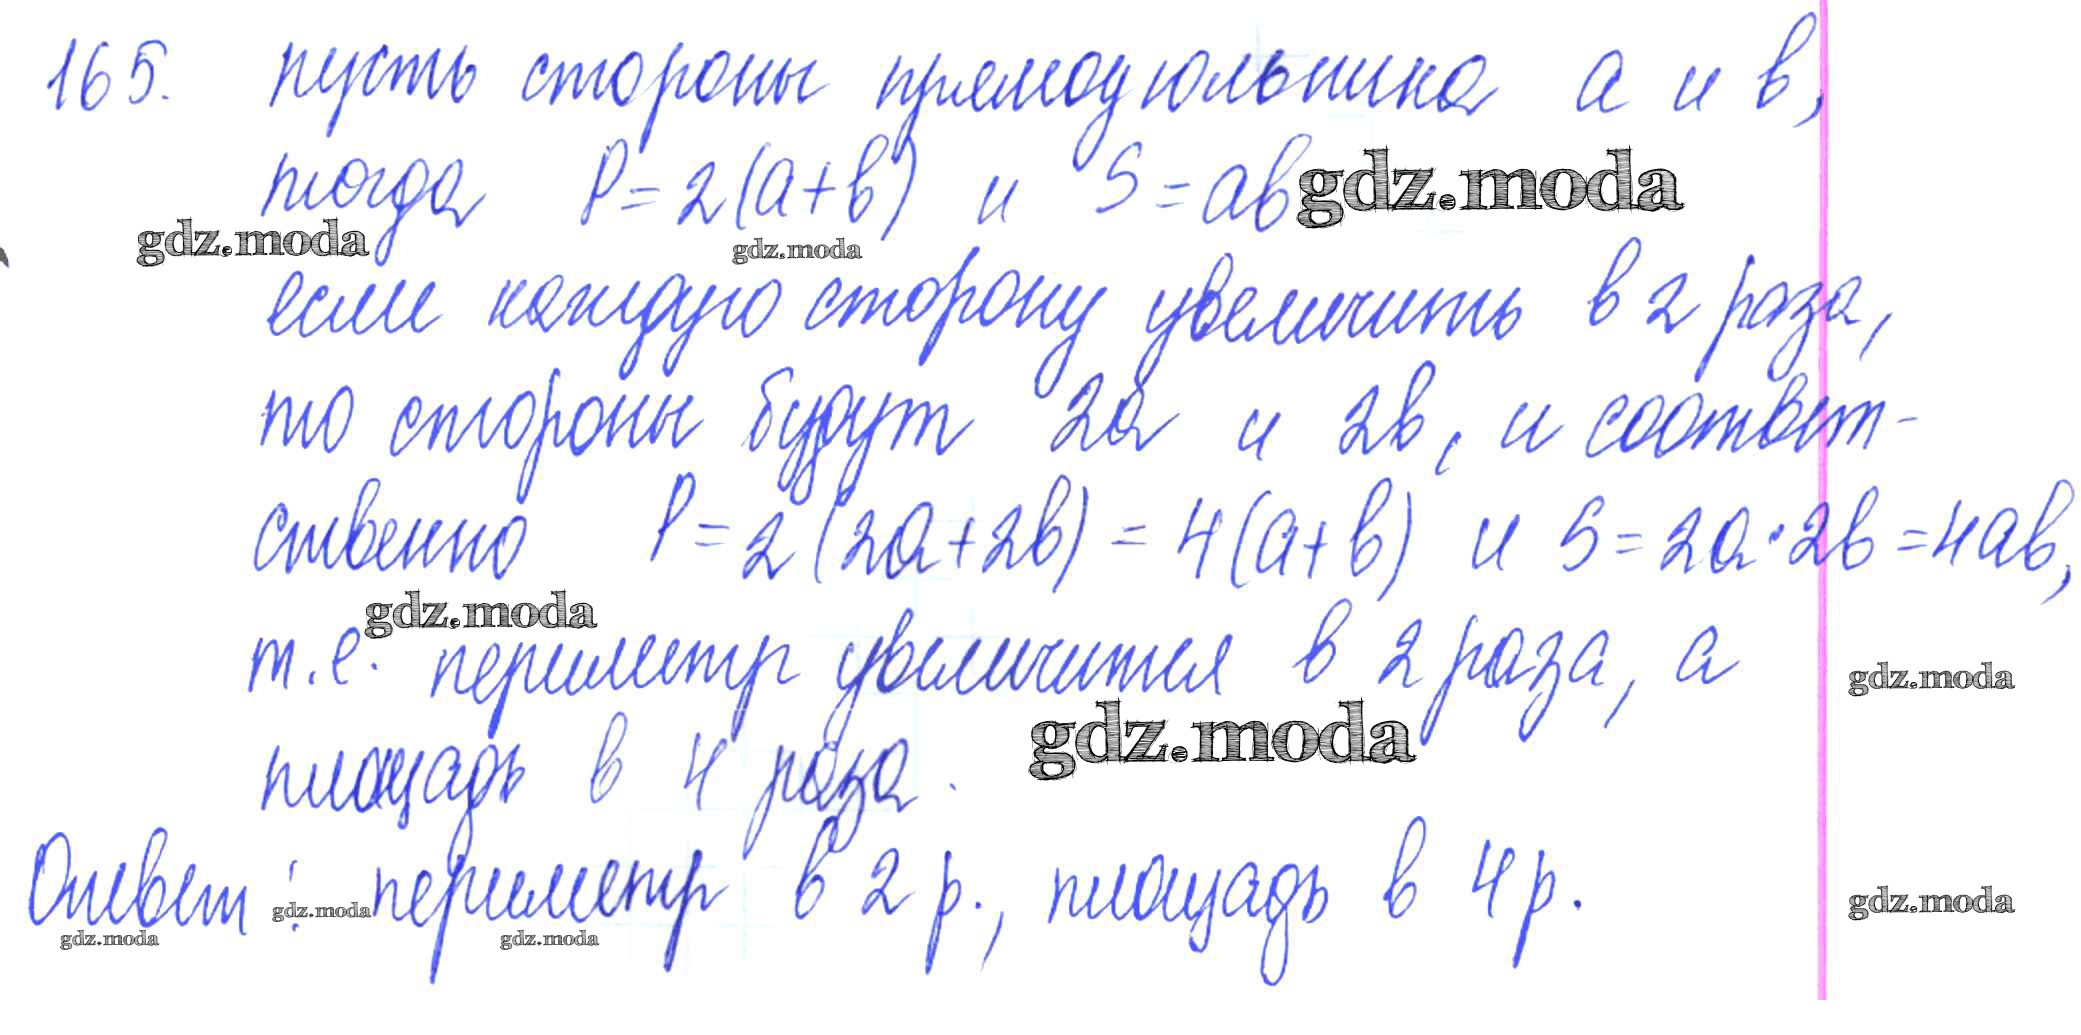 165. пусть стороны прямоугольника а и в,
тогда P=2(a+в) и S=aв gdz.moda
gdz.moda gdz.moda
если каждую сторону увеличить в 2 раза,
то стороны будут 2а и 2в, и соответ-
ственно P=2(2а+2в)=4(а+в) и S=2а·2в=4ав,
gdz.moda
т.е. периметр увеличится в 2 раза, а
gdz.moda
площадь в 4 раза. gdz.moda
Ответ: gdz.moda периметр в 2 р., площадь в 4р. gdz.moda
gdz.moda gdz.moda